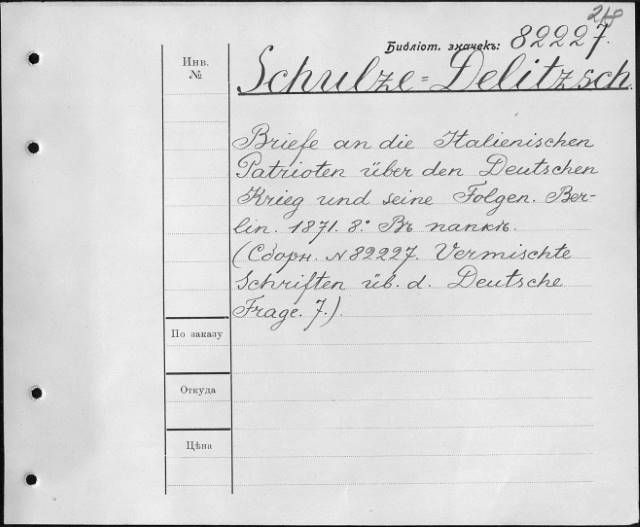 218
Библіот. значекъ: 82227.
Инв.
№
Schulze=Delitzsch.
Briefe an die Italienischen
Patrioten über den Deutschen
Krieg und seine Folgen. Ber-
lin. 1871. 8.° Въ папкѣ.
(Сборн. N 82227. Vermischte
Schriften üb. d. Deutsche
Frage. 7.).
По заказу
Откуда
Цѣна